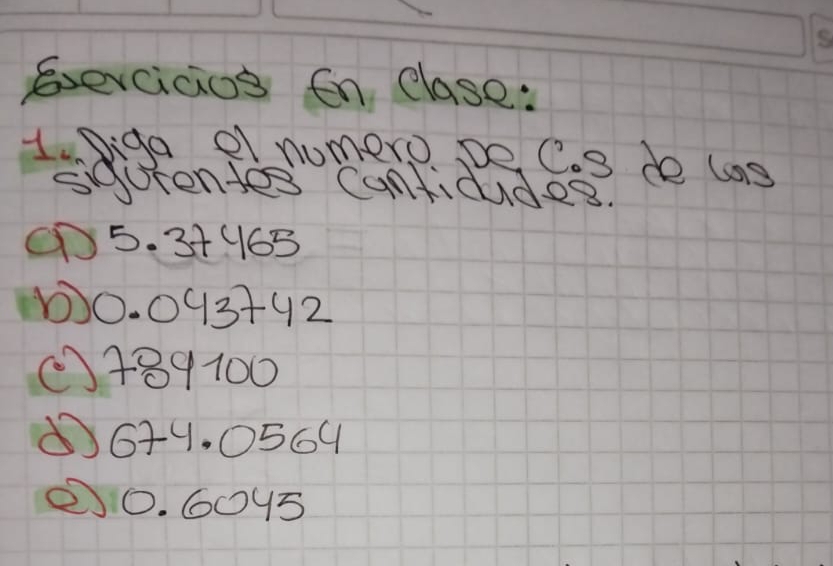 Exercicios En Clase:
1. Diga el numero De C.s de las
siguientes Cantidades.
a) 5.37465
b) 0.043742
c) 789100
d) 674.0564
e) 0.6045